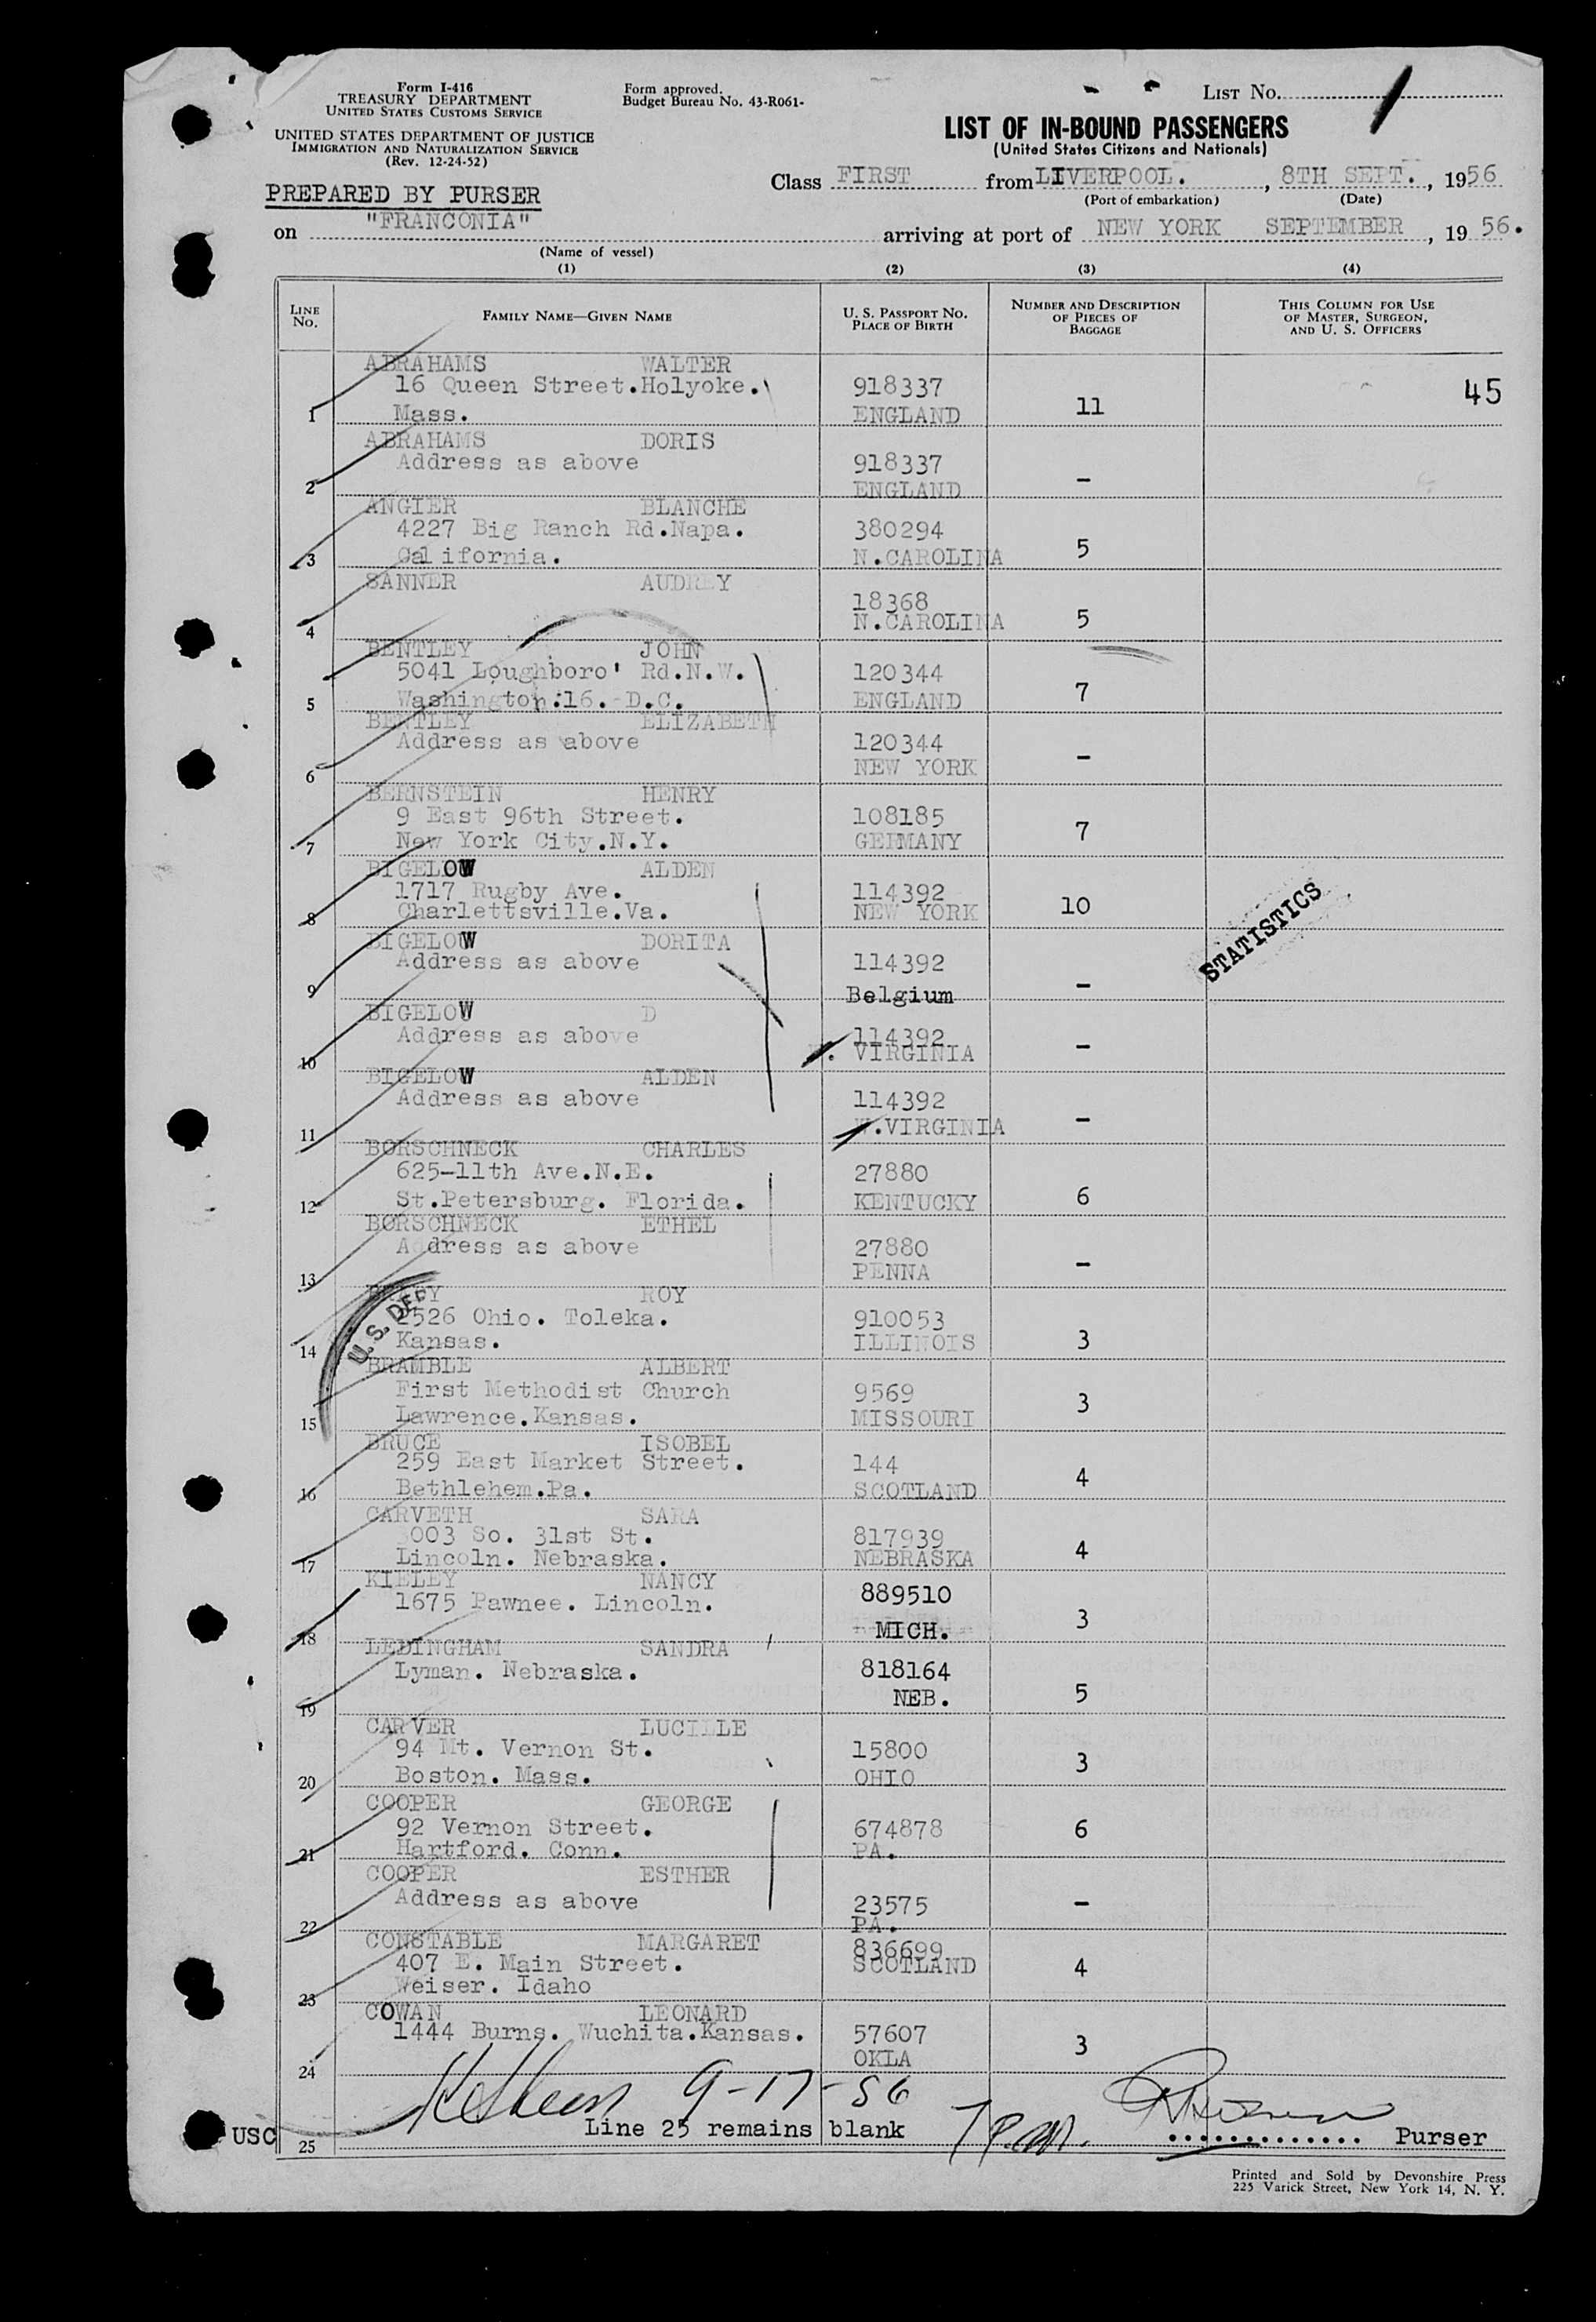 Form I-416
TREASURY DEPARTMENT
UNITED STATES CUSTOMS SERVICE
UNITED STATES DEPARTMENT OF JUSTICE
IMMIGRATION AND NATURALIZATION SERVICE
(Rev. 12-24-52)
Form approved.
Budget Bureau No. 43-R061-
LIST NO. 1
LIST OF IN-BOUND PASSENGERS
(United States Citizens and Nationals)
Class FIRST from LIVERPOOL. , 8TH SEPT. , 1956
(Port of embarkation) (Date)
PREPARED BY PURSER
on "FRANCONIA" arriving at port of NEW YORK SEPTEMBER , 19 56.
(Name of vessel)
(1) (2) (3) (4)
LINE NO. FAMILY NAME—GIVEN NAME U. S. PASSPORT NO. PLACE OF BIRTH NUMBER AND DESCRIPTION OF PIECES OF BAGGAGE THIS COLUMN FOR USE OF MASTER, SURGEON, AND U. S. OFFICERS
ABRAHAMS WALTER
16 Queen Street.Holyoke. 918337 45
1 Mass. ENGLAND 11
ABRAHAMS DORIS
Address as above 918337
2 ENGLAND -
ANGIER BLANCHE
4227 Big Ranch Rd.Napa. 380294
3 California. N.CAROLINA 5
SANNER AUDREY
18368
4 N.CAROLINA 5
BENTLEY JOHN
5041 Loughboro' Rd.N.W. 120344
5 Washington.16. D.C. ENGLAND 7
BENTLEY ELIZABETH
Address as above 120344
6 NEW YORK -
BERNSTEIN HENRY
9 East 96th Street. 108185
7 New York City.N.Y. GERMANY 7
BIGELOW ALDEN
1717 Rugby Ave. 114392
8 Charlettsville.Va. NEW YORK 10
STATISTICS
BIGELOW DORITA
Address as above 114392
9 Belgium -
BIGELOW D
Address as above 114392
10 VIRGINIA -
BIGELOW ALDEN
Address as above 114392
11 .VIRGINIA -
BORSCHNECK CHARLES
625-11th Ave.N.E. 27880
12 St.Petersburg. Florida. KENTUCKY 6
BORSCHNECK ETHEL
Address as above 27880
13 PENNA -
ROY
2526 Ohio. Toleka. 910053
14 Kansas. ILLINOIS 3
U.S. DEP
BRAMBLE ALBERT
First Methodist Church 9569
15 Lawrence.Kansas. MISSOURI 3
BRUCE ISOBEL
259 East Market Street. 144
16 Bethlehem.Pa. SCOTLAND 4
CARVETH SARA
3003 So. 31st St. 817939
17 Lincoln. Nebraska. NEBRASKA 4
KIELEY NANCY
1675 Pawnee. Lincoln. 889510
18 MICH. 3
LEDINGHAM SANDRA
Lyman. Nebraska. 818164
19 NEB. 5
CARVER LUCILLE
94 Mt. Vernon St. 15800
20 Boston. Mass. OHIO 3
COOPER GEORGE
92 Vernon Street. 674878
21 Hartford. Conn. PA. 6
COOPER ESTHER
Address as above 23575
22 PA. -
CONSTABLE MARGARET 836699
407 E. Main Street. SCOTLAND
23 Weiser. Idaho 4
COWAN LEONARD
1444 Burns. Wuchita.Kansas. 57607
24 OKLA 3
9-17-56
USC 25 Line 25 remains blank ............. Purser
Printed and Sold by Devonshire Press
225 Varick Street, New York 14, N. Y.